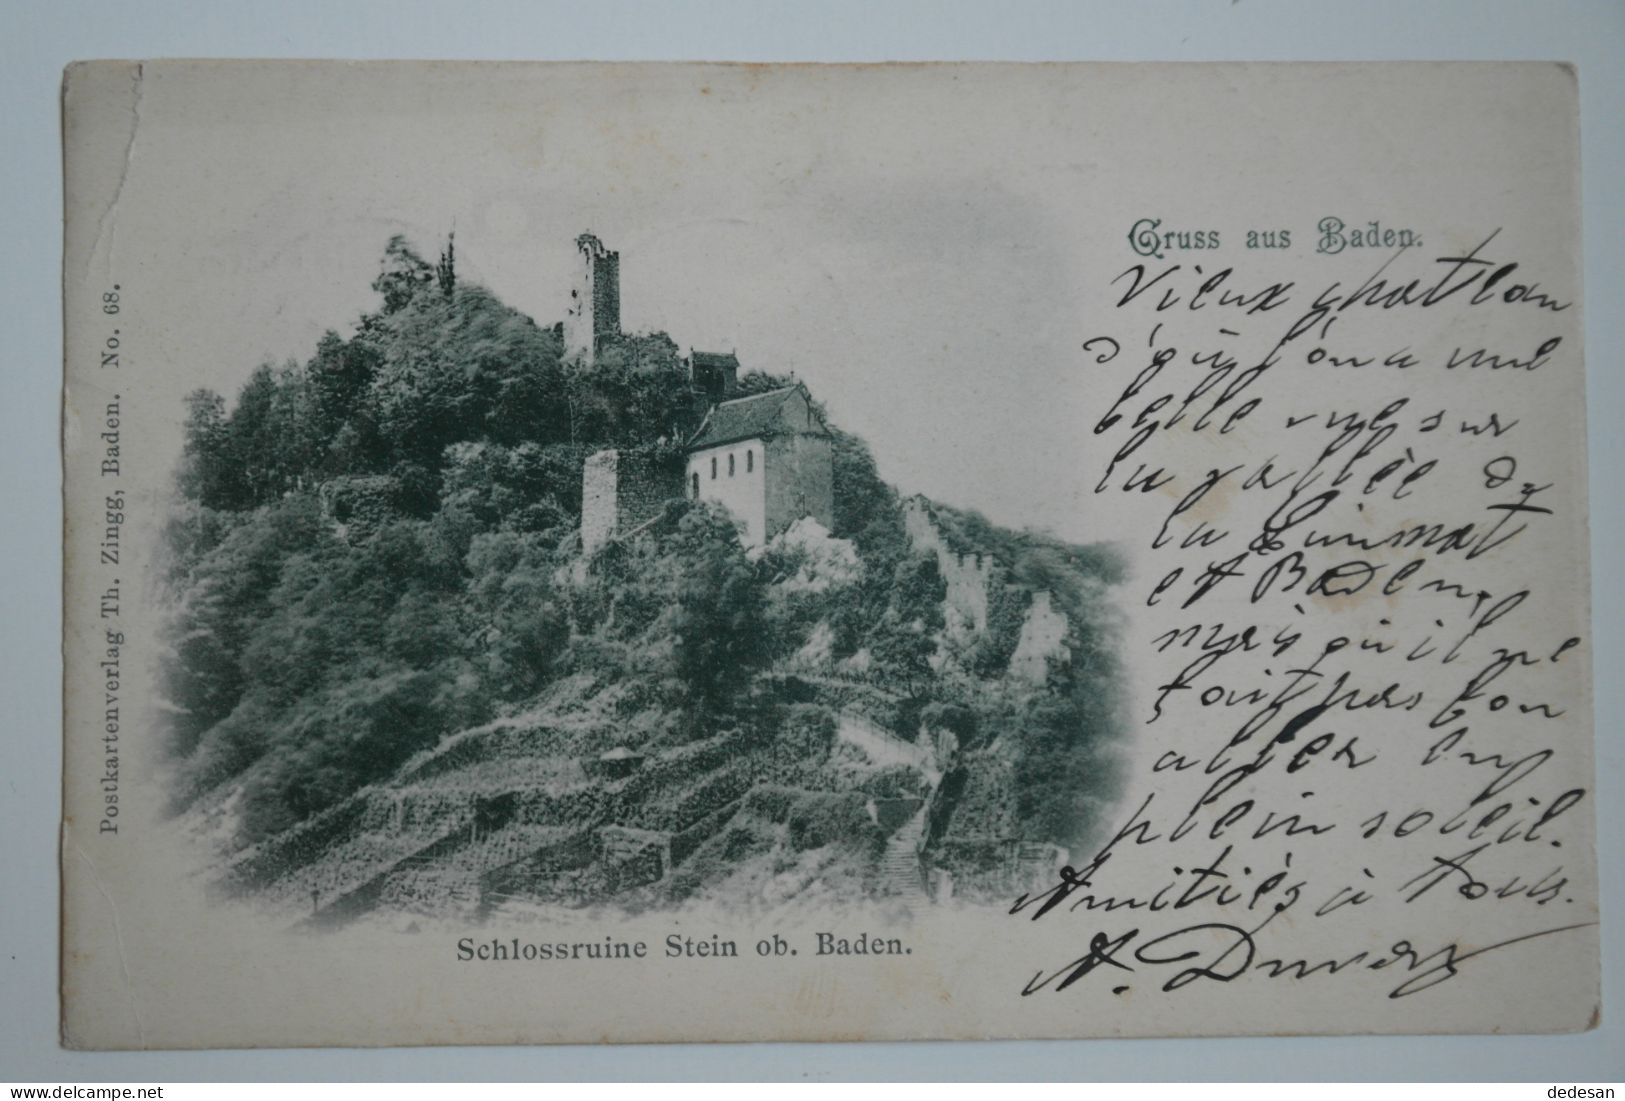 Postkartenverlag Th. Zingg, Baden. No. 68.
Gruss aus Baden.
Vieux chatlau
d'où l'on a une
belle vue sur
la vallée de
la Limmat
et Baden,
mais qu'il ne
fait pas bon
aller en
plein soleil.
Amitiés à tous.
A.
Schlossruine Stein ob. Baden.
www.delcampe.net
dedesan